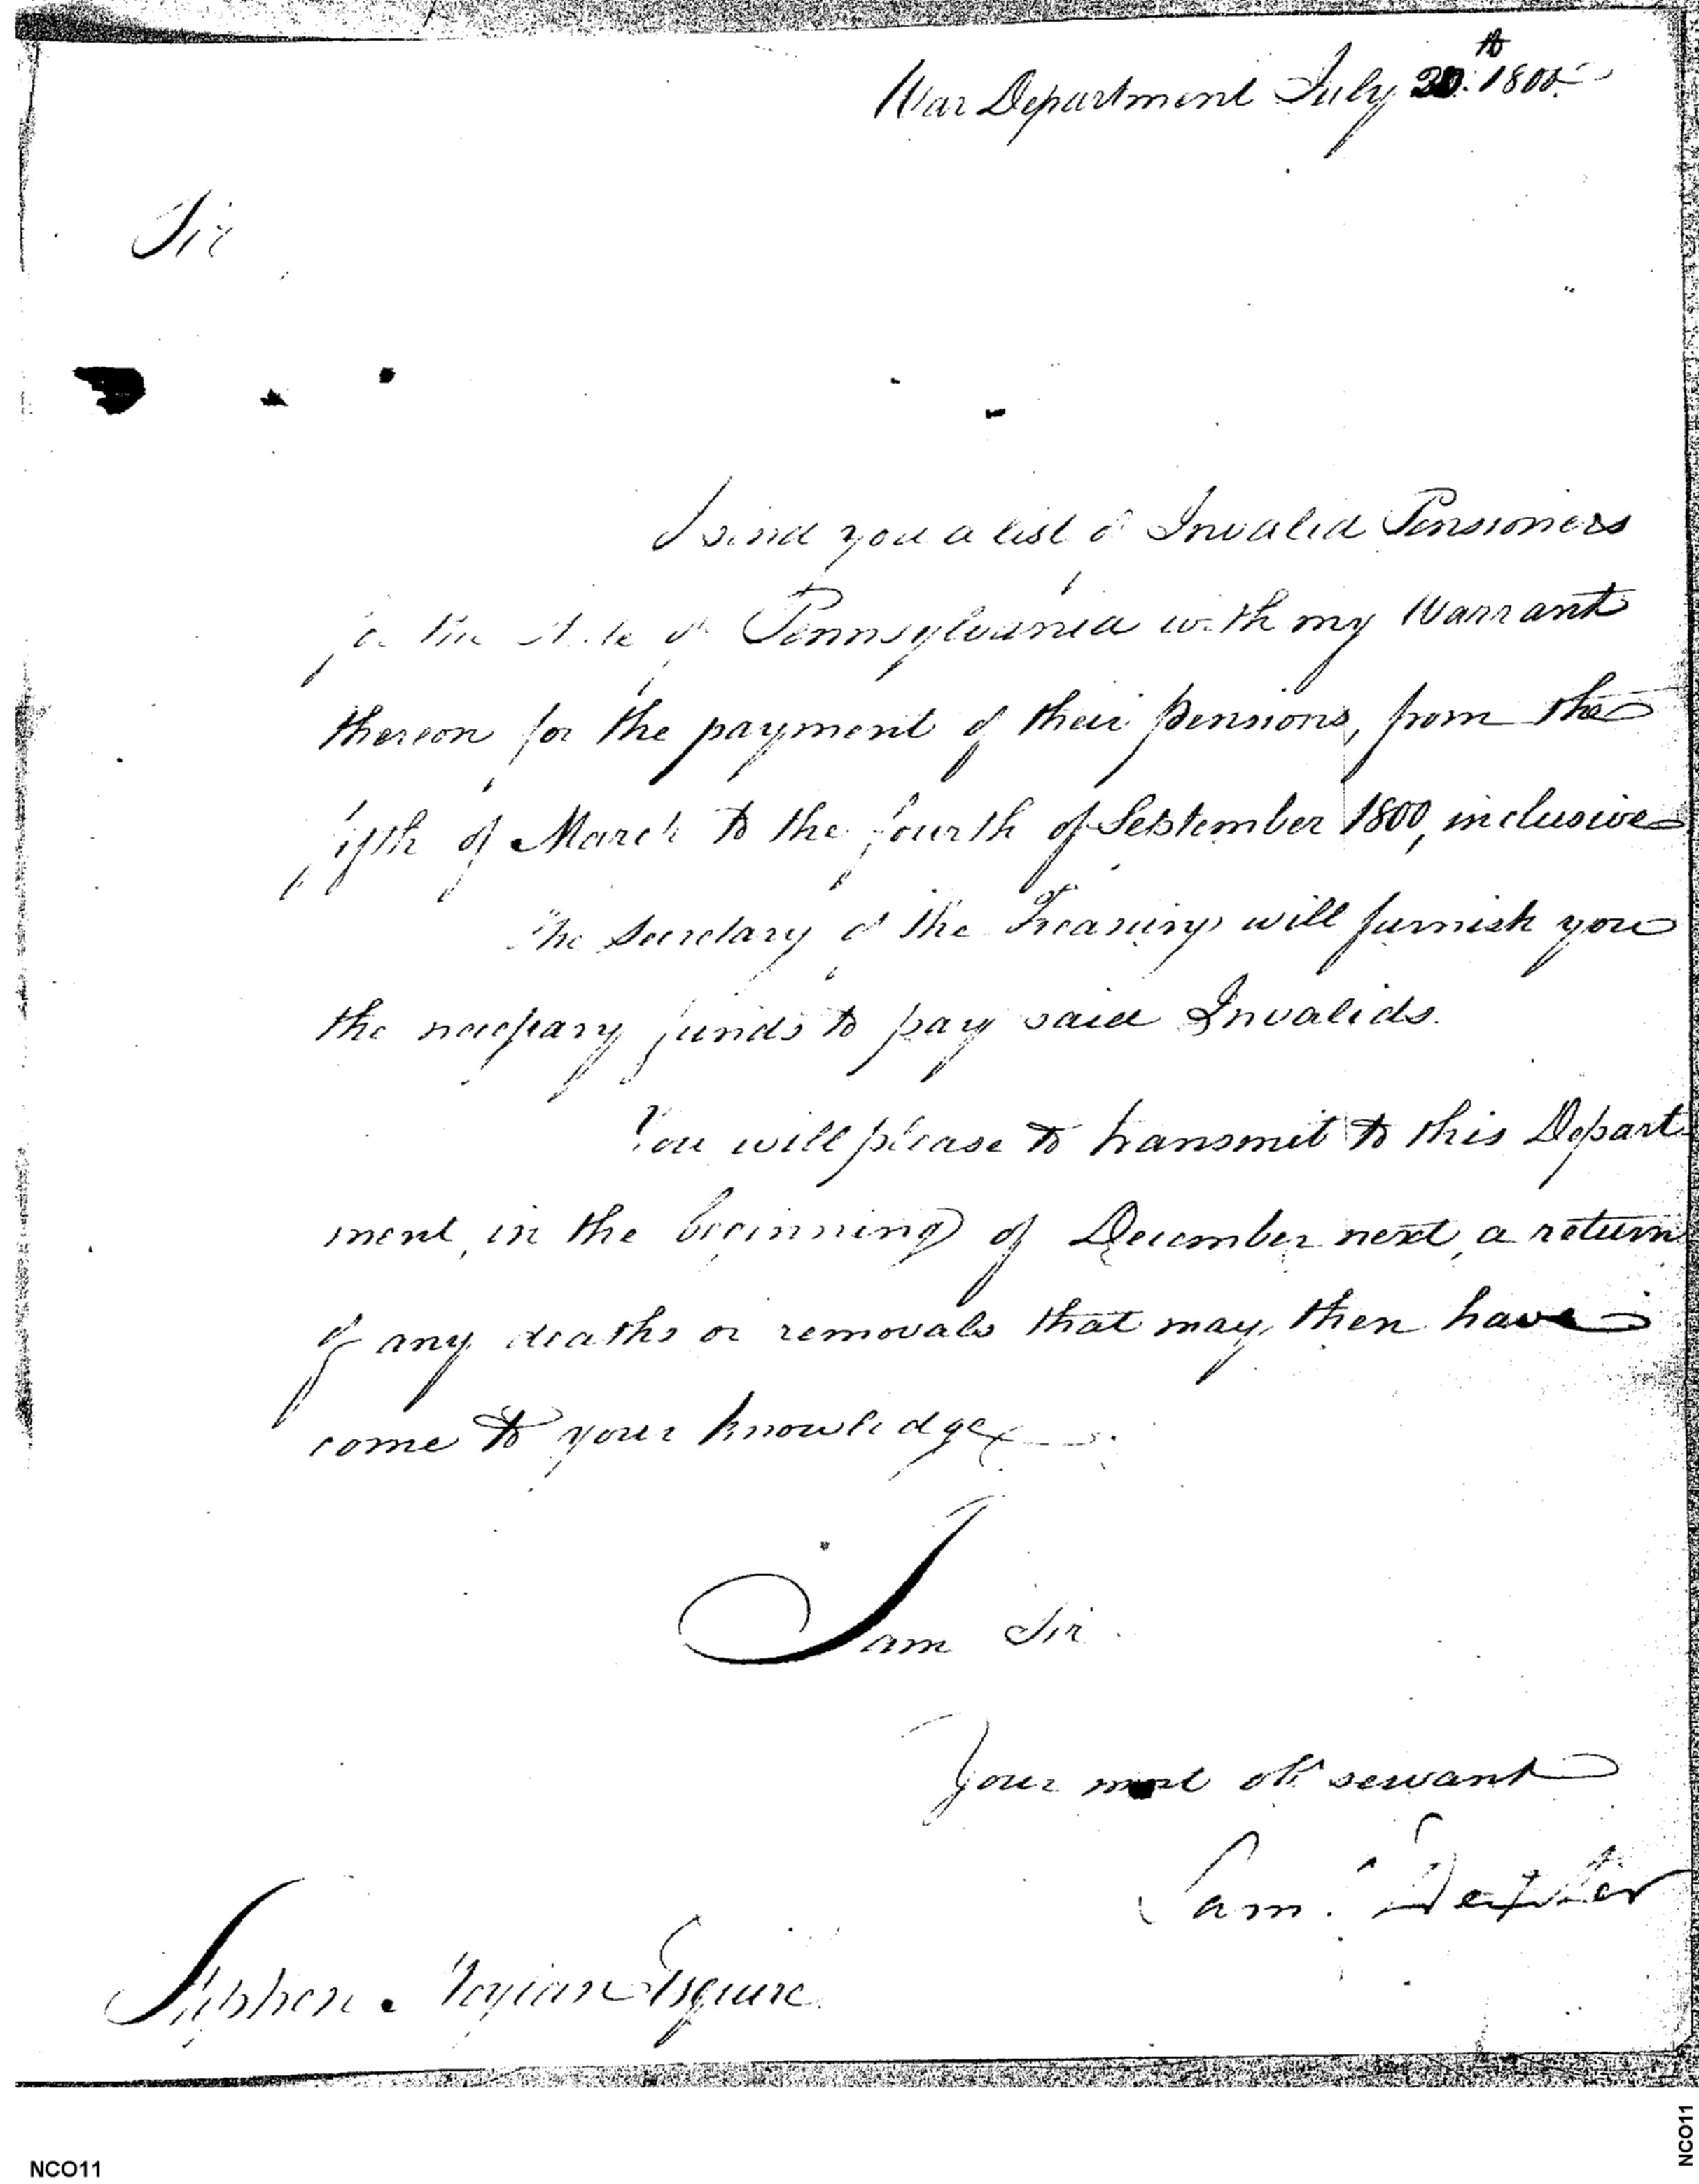 War Department July 20th 1800.
Sir
I send you a list of Invalid Pensioners
for the State of Pennsylvania with my Warrant
thereon for the payment of their pensions, from the
fifth of March to the fourth of September 1800, inclusive
The Secretary of the Treasury will furnish you
the necessary funds to pay said Invalids.
You will please to transmit to this Depart
ment, in the beginning of December next, a return
of any deaths or removals that may then have
come to your knowledge
I am Sir
Your most obt servant
Saml Dexter
Stephen Moylan Esquire
NCO11
NCO11